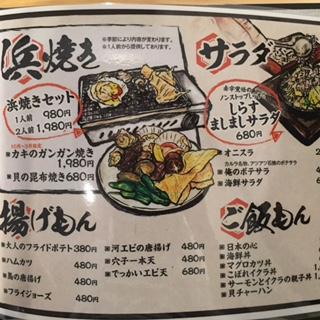 浜焼き
※季節により内容が変わります。
※1人前から提供しております。
浜焼きセット
1人前 980円
2人前 1,980円
10月~3月限定
※カキのガンガン焼き
1,980円
※貝の昆布焼き680円
サラダ
しらす
ましましサラダ
680円
※オニスラ
※俺のポテサラ
※海鮮サラダ
揚げもん
※大人のフライドポテト380円
※ハムカツ 480円
480円
※フライジョーズ 480円
※河エビの唐揚げ 480円
※穴子一本天 480円
※でっかいエビ天 680円
ご飯もん
※日本の心
※海鮮丼
※マグロカツ丼
※こぼれイクラ丼
※サーモンとイクラの親子丼
※貝チャーハン